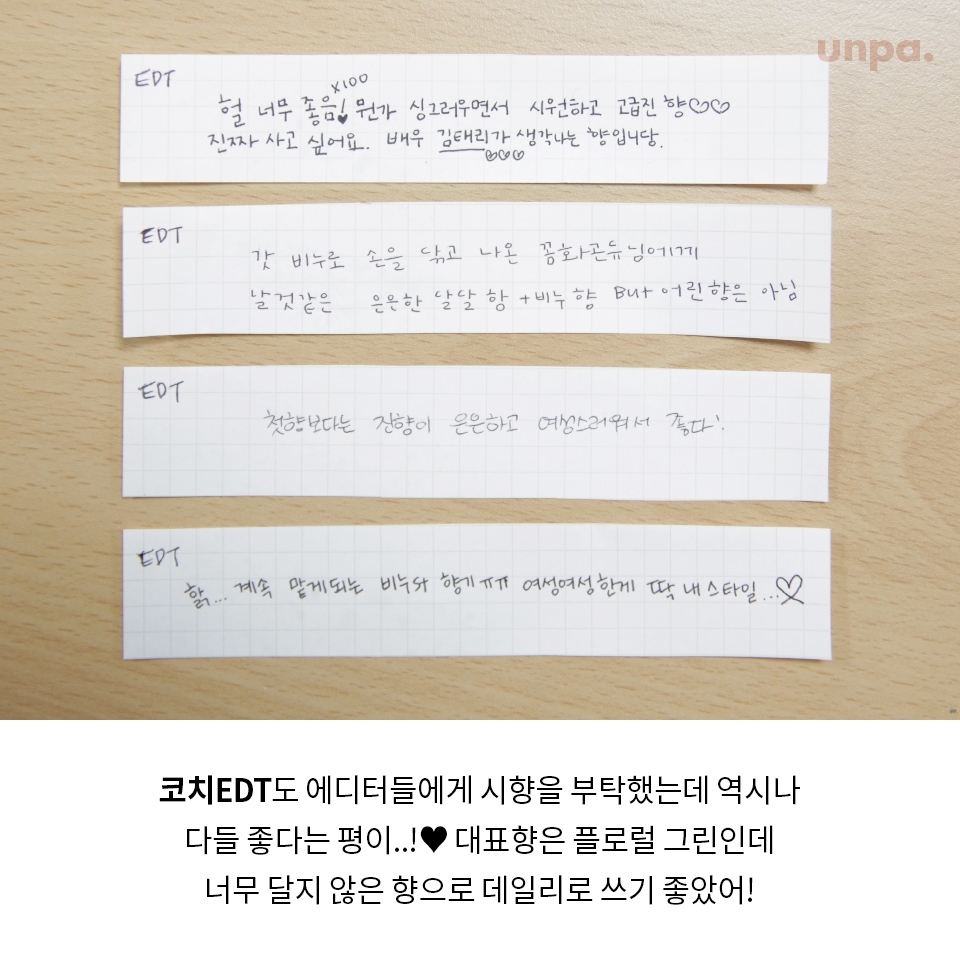 unpa.
EDT
x100
헐 너무 좋음!♥ 뭔가 싱그러우면서 시원하고 고급진 향♡♡
진짜 사고 싶어요. 배우 김태리가 생각나는 향입니당.
♡♡♡
EDT
갓 비누로 손을 닦고 나온 꽁화곤듀님에게
날것같은 은은한 달달 향 + 비누 향 But 어린향은 아님
EDT
첫향보다는 잔향이 은은하고 여성스러워서 좋다!
EDT
핡... 계속 맡게되는 비누와 향기ㅠㅠ 여성여성한게 딱 내 스타일...♡
코치EDT도 에디터들에게 시향을 부탁했는데 역시나
다들 좋다는 평이..!♥ 대표향은 플로럴 그린인데
너무 달지 않은 향으로 데일리로 쓰기 좋았어!